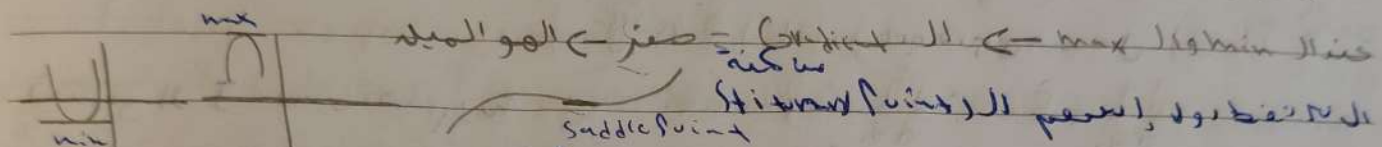 max
عند ال min وال max -> ال Gradient = صفر -> الهو الميل
ساكنة
ال 3 نقط دول إسمهم ال (Stitunary Point)
Saddle Point
min